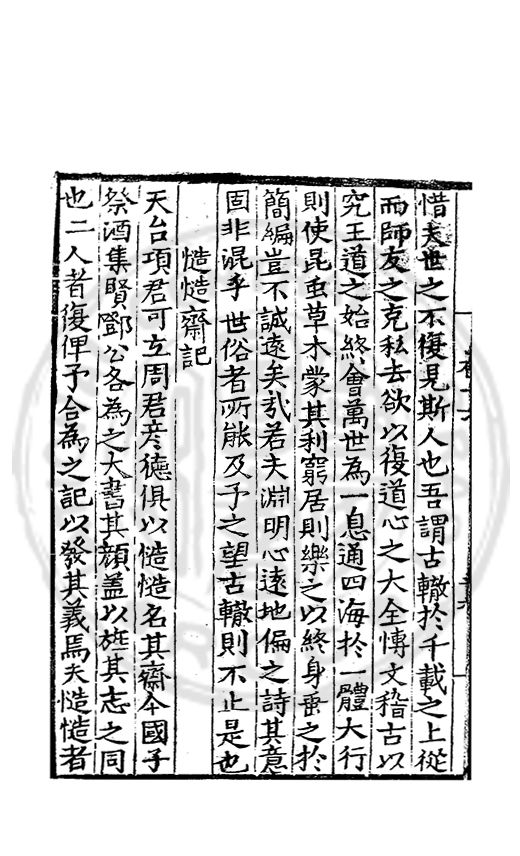 惜夫世之不復見斯人也吾謂古轍於千載之上從
而師友之克私去欲以復道心之大全慱文稽古以
究王道之始終會萬世為一息通四海於一體大行
則使昆虫草木蒙其利窮居則樂之以終身垂之於
簡編豈不誠遠矣㦲若夫淵明心遠地偏之詩其意
固非混乎世俗者所能及予之望古轍則不止是也
慥慥齋記
天台項君可立周君彦德俱以慥慥名其齋今國子
祭酒集賢鄧公各為之大書其顔盖以旌其志之同
也二人者復俾予合為之記以發其義焉夫慥慥者